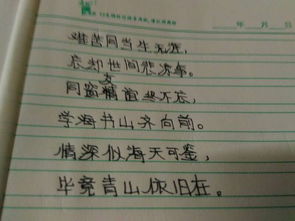 年 月 日
难苦同当生无涯，
忘却世间悲凉事。
同窗友谊终不忘，
学海书山齐向前。
情深似海天可鉴，
毕竟青山依旧在。